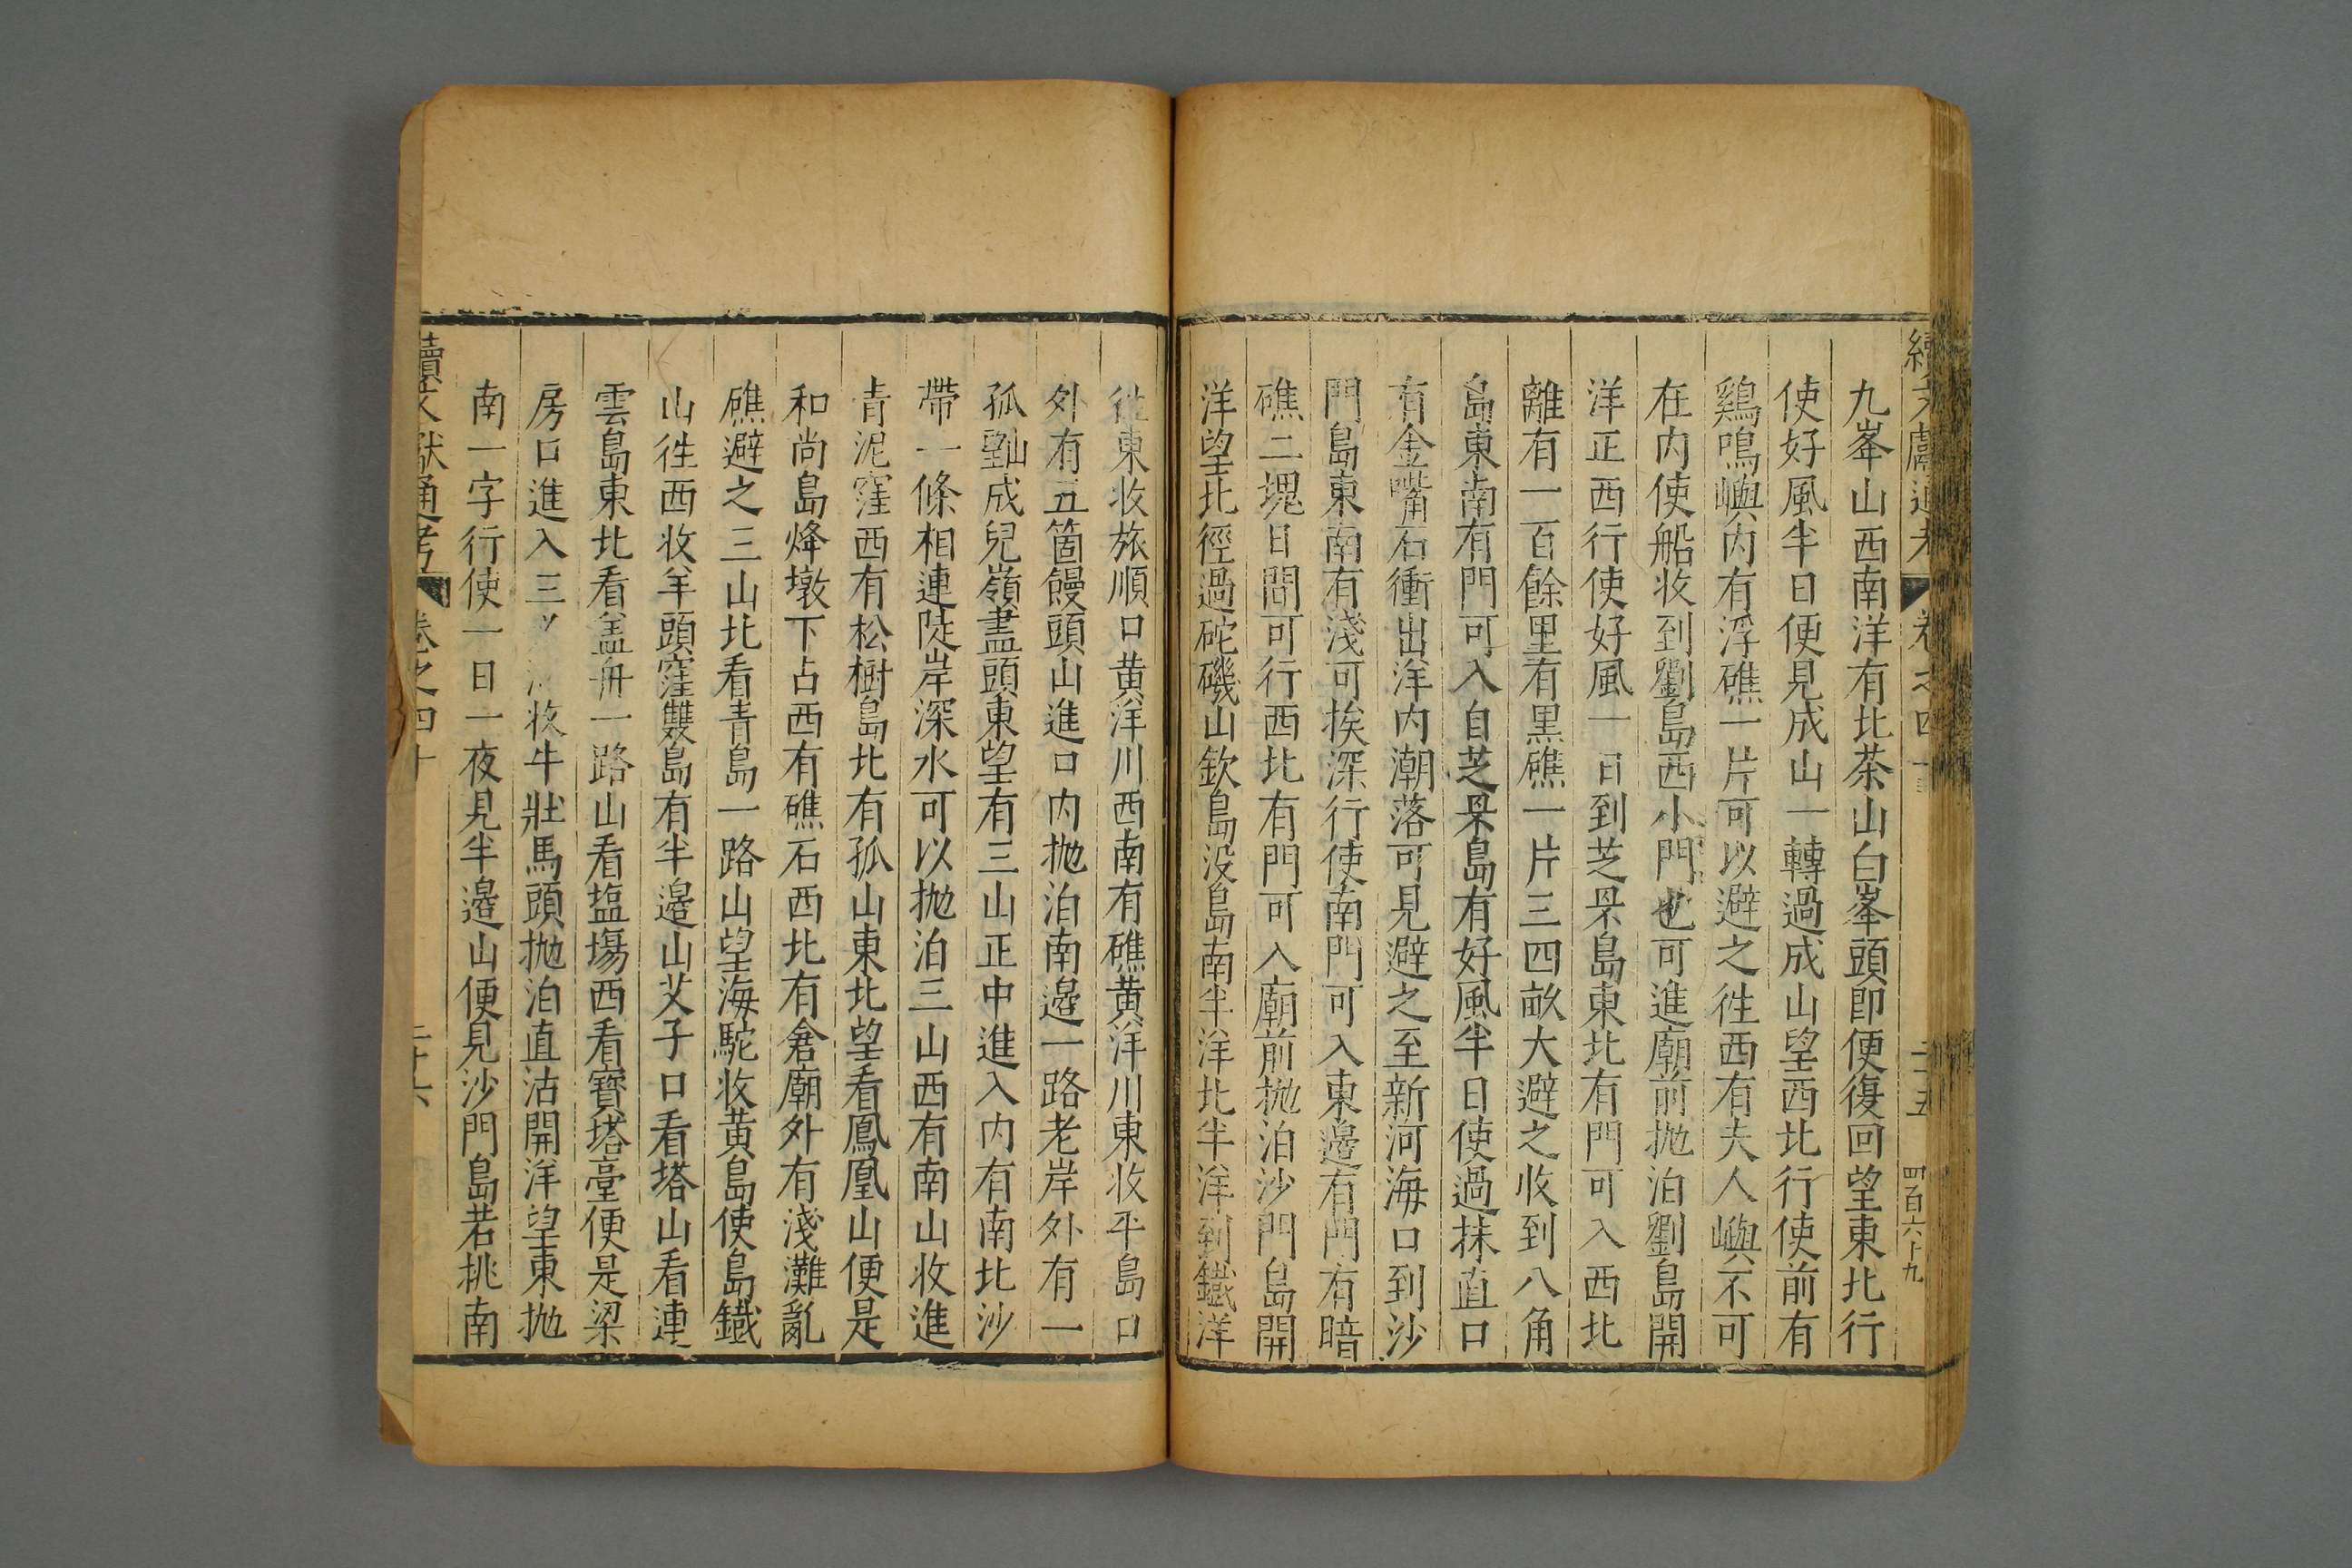 續文獻通考 卷之四十 二十五 四百六十九
九峯山西南洋有北茶山白峯頭即便復回望東北行
使好風半日便見成山一轉過成山望西北行使前有
鷄鳴嶼内有浮礁一片可以避之徃西有夫人嶼不可
在内使船收到劉島西小門也可進廟前抛泊劉島開
洋正西行使好風一日到芝罘島東北有門可入西北
離有一百餘里有黒礁一片三四畝大避之收到八角
島東南有門可入自芝罘島有好風半日使過抹直口
有金嘴石衝出洋内潮落可見避之至新河海口到沙
門島東南有淺可挨深行使南門可入東邉有門有暗
礁二塊日間可行西北有門可入廟前抛泊沙門島開
洋望北徑過砣磯山欽島没島南半洋北半洋到鐵洋
徃東收旅順口黄洋川西南有礁黄洋川東收平島口
外有五箇饅頭山進口内抛泊南邉一路老岸外有一
孤山成兒嶺盡頭東望有三山正中進入内有南北沙
帶一條相連陡岸深水可以抛泊三山西有南山收進
青泥窪西有松樹島北有孤山東北望看鳳凰山便是
和尚島烽墩下占西有礁石西北有倉廟外有淺灘亂
礁避之三山北看青島一路山望海駝收黄島使島鐵
山徃西收羊頭窪雙島有半邉山艾子口看塔山看連
雲島東北看盖舟一路山看塩塲西看寳塔臺便是梁
房口進入三 收牛壯馬頭抛泊直沽開洋望東抛
南一字行使一日一夜見半邉山便見沙門島若挑南
續文獻通考 卷之四十 二十六